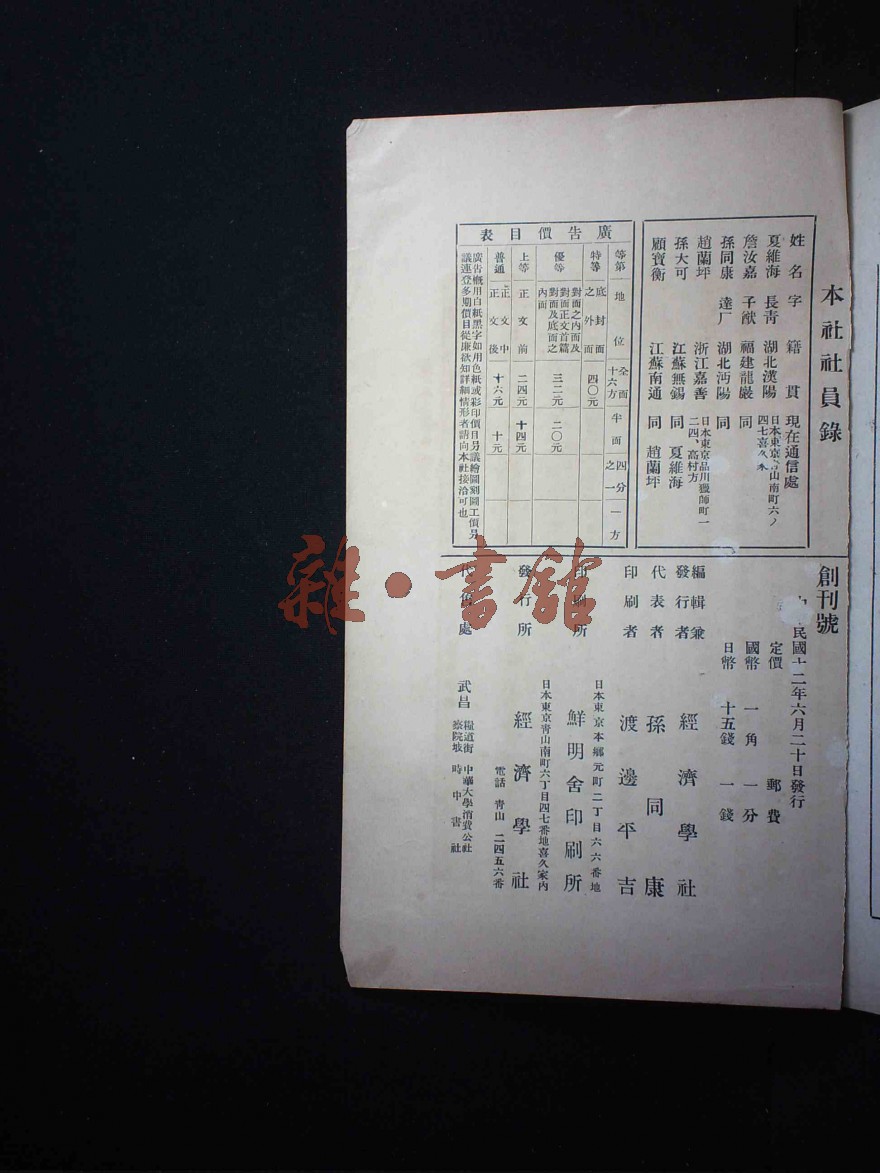 本社社員錄
姓名 字 籍貫 現在通信處
夏維海 長青 湖北漢陽 日本東京青山南町六ノ
四七喜久
詹汝嘉 子猷 福建龍巖 同
孫同康 達厂 湖北沔陽 同
趙蘭坪 浙江嘉善 日本東京品川獵師町一
二四、高村方
孫大可 江蘇無錫 同 夏維海
顧寶衡 江蘇南通 同 趙蘭坪
廣告價目表
等第 地位 全面十六方 半面 四分之一 一方
特等 底封面之外面 四〇元
優等 對面之內面及
對面正文首篇
對面及底面之
內面 三二元 二〇元
上等 正文前 二四元 十四元
普通 正文中
正文後 十六元 十元
廣告概用白紙黑字如用色紙或彩印價目另議繪圖刻圖工價另
議連登多期價目從廉欲知詳細情形者請向本社接洽可也
創刊號
民國十二年六月二十日發行
定價 郵費
國幣 一角 一分
日幣 十五錢 一錢
編輯兼
發行者 經濟學社
代表者 孫同康
印刷者 渡邊平吉
日本東京本鄉元町二丁目六六番地
印刷所 鮮明舍印刷所
日本東京青山南町六丁目四七番地喜久家內
發行所 經濟學社
電話 青山 二四五六番
代售處 武昌 糧道街 中華大學消費公社
察院坡 時中書社
雜·書館